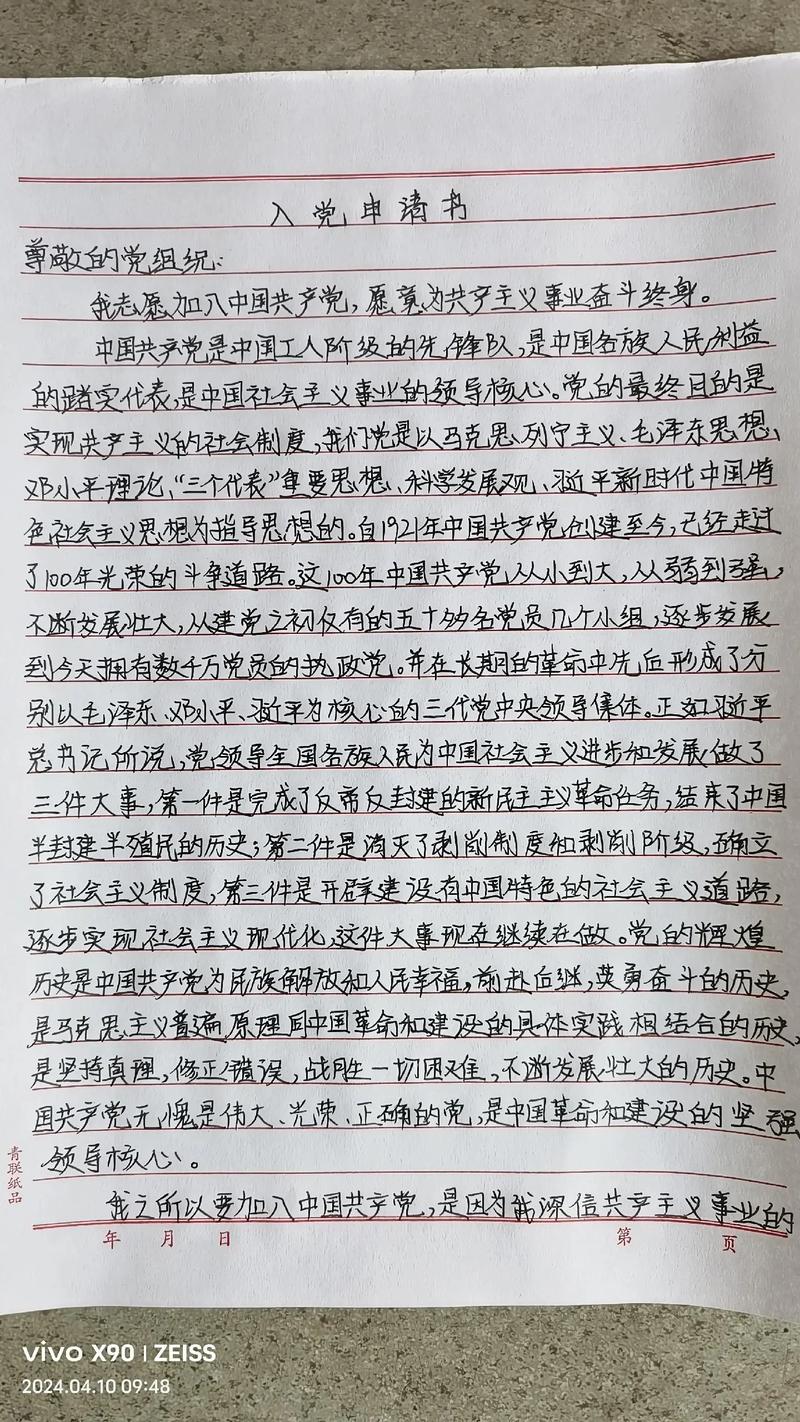 入党申请书
尊敬的党组织:
我志愿加入中国共产党,愿意为共产主义事业奋斗终身。
中国共产党是中国工人阶级的先锋队,是中国各族人民利益
的踏实代表,是中国社会主义事业的领导核心。党的最终目的是
实现共产主义的社会制度,我们党是以马克思列宁主义、毛泽东思想、
邓小平理论、“三个代表”重要思想、科学发展观、习近平新时代中国特
色社会主义思想为指导思想的。自1921年中国共产党创建至今,已经走过
了100年光荣的斗争道路。这100年中国共产党从小到大,从弱到强,
不断发展壮大,从建党之初仅有的五十多名党员几个小组,逐步发展
到今天拥有数千万党员的执政党。并在长期的革命中先后形成了分
别以毛泽东、邓小平、习近平为核心的三代党中央领导集体。正如习近平
总书记所说,党领导全国各族人民为中国社会主义进步和发展做了
三件大事,第一件是完成了反帝反封建的新民主主义革命任务,结束了中国
半封建半殖民的历史;第二件是消灭了剥削制度和剥削阶级,确立
了社会主义制度,第三件是开辟建设有中国特色的社会主义道路,
逐步实现社会主义现代化,这件大事现在继续在做。党的辉煌
历史是中国共产党为民族解放和人民幸福,前赴后继,英勇奋斗的历史,
是马克思主义普遍原理同中国革命和建设的具体实践相结合的历史,
是坚持真理,修正错误,战胜一切困难,不断发展壮大的历史。中
国共产党无愧是伟大、光荣、正确的党,是中国革命和建设的坚强
领导核心。
我之所以要加入中国共产党,是因为我深信共产主义事业的
青联纸品
年 月 日 第 页
vivo X90 | ZEISS
2024.04.10 09:48